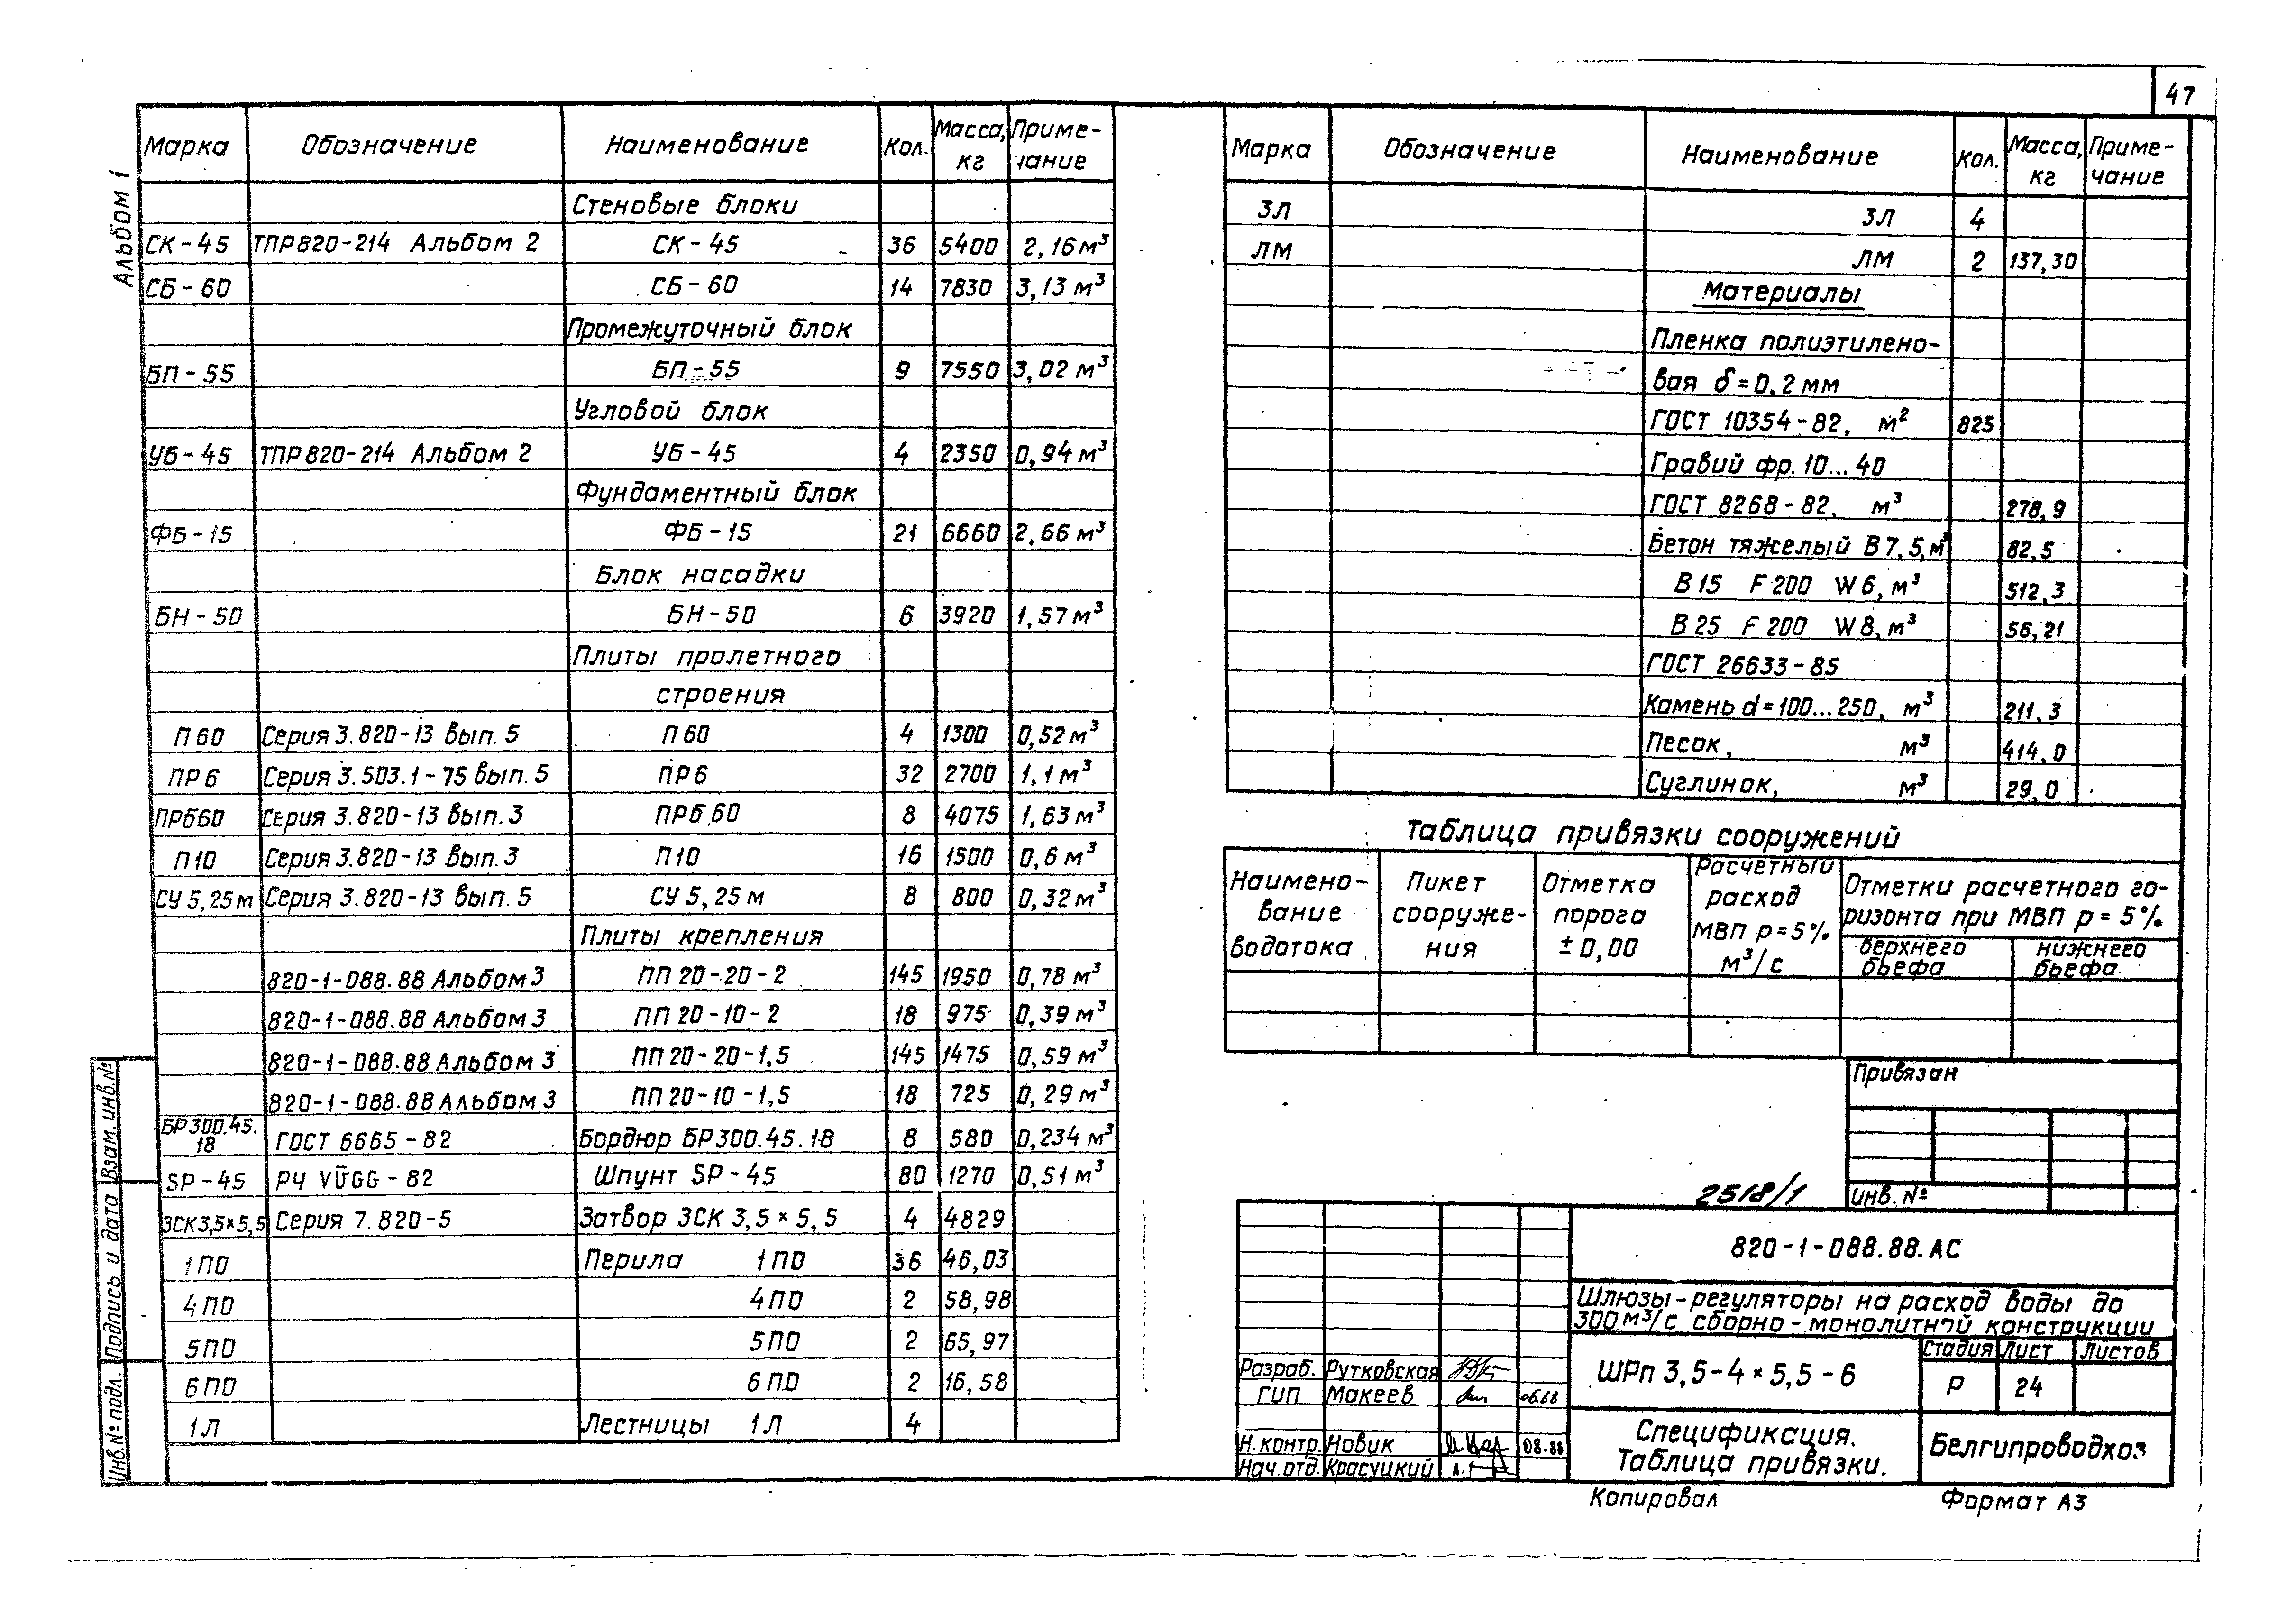 47
Альбом 1
Марка Обозначение Наименование Кол. Масса, кг Примечание
Стеновые блоки
СК-45 ТПР820-214 Альбом 2 СК-45 36 5400 2,16 м³
СБ-60 СБ-60 14 7830 3,13 м³
Промежуточный блок
БП-55 БП-55 9 7550 3,02 м³
Угловой блок
УБ-45 ТПР820-214 Альбом 2 УБ-45 4 2350 0,94 м³
Фундаментный блок
ФБ-15 ФБ-15 21 6660 2,66 м³
Блок насадки
БН-50 БН-50 6 3920 1,57 м³
Плиты пролетного
строения
П60 Серия 3.820-13 вып. 5 П60 4 1300 0,52 м³
ПР6 Серия 3.503.1-75 вып. 5 ПР6 32 2700 1,1 м³
ПРб60 Серия 3.820-13 вып. 3 ПРб.60 8 4075 1,63 м³
П10 Серия 3.820-13 вып. 3 П10 16 1500 0,6 м³
СУ 5,25м Серия 3.820-13 вып. 5 СУ 5,25 м 8 800 0,32 м³
Плиты крепления
820-1-088.88 Альбом 3 ПП 20-20-2 145 1950 0,78 м³
820-1-088.88 Альбом 3 ПП 20-10-2 18 975 0,39 м³
820-1-088.88 Альбом 3 ПП 20-20-1,5 145 1475 0,59 м³
820-1-088.88 Альбом 3 ПП 20-10-1,5 18 725 0,29 м³
БР300.45.18 ГОСТ 6665-82 Бордюр БР300.45.18 8 580 0,234 м³
SP-45 РЧ VŪGG-82 Шпунт SP-45 80 1270 0,51 м³
ЗСК3,5×5,5 Серия 7.820-5 Затвор ЗСК 3,5×5,5 4 4829
1ПО Перила 1ПО 36 46,03
4ПО 4ПО 2 58,98
5ПО 5ПО 2 65,97
6ПО 6ПО 2 16,58
1Л Лестницы 1Л 4
Взам.инв.№
Подпись и дата
Инв.№ подл.
Марка Обозначение Наименование Кол. Масса, кг Примечание
3Л 3Л 4
ЛМ ЛМ 2 137,30
Материалы
Пленка полиэтилено-
вая δ=0,2мм
ГОСТ 10354-82, м² 825
Гравий фр. 10...40
ГОСТ 8268-82, м³ 278,9
Бетон тяжелый В7,5, м³ 82,5
В15 F200 W6, м³ 512,3
В25 F200 W8, м³ 56,21
ГОСТ 26633-85
Камень d=100...250, м³ 211,3
Песок, м³ 414,0
Суглинок, м³ 29,0
Таблица привязки сооружений
Наимено-
вание
водотока
Пикет
сооруже-
ния
Отметка
порога
±0,00
Расчетный
расход
МВП р=5%
м³/с
Отметки расчетного го-
ризонта при МВП р=5%
верхнего
бьефа
нижнего
бьефа
Привязан
инв. №
2518/1
820-1-088.88.АС
Шлюзы-регуляторы на расход воды до
300м³/с сборно-монолитной конструкции
ШРп 3,5-4×5,5-6
Стадия Лист Листов
Р 24
Разраб. Рутковская
ГИП Макеев 06.88
Н.контр. Новик 08.88
Нач.отд. Красуцкий
Спецификация.
Таблица привязки.
Белгипроводхоз
Копировал Формат А3